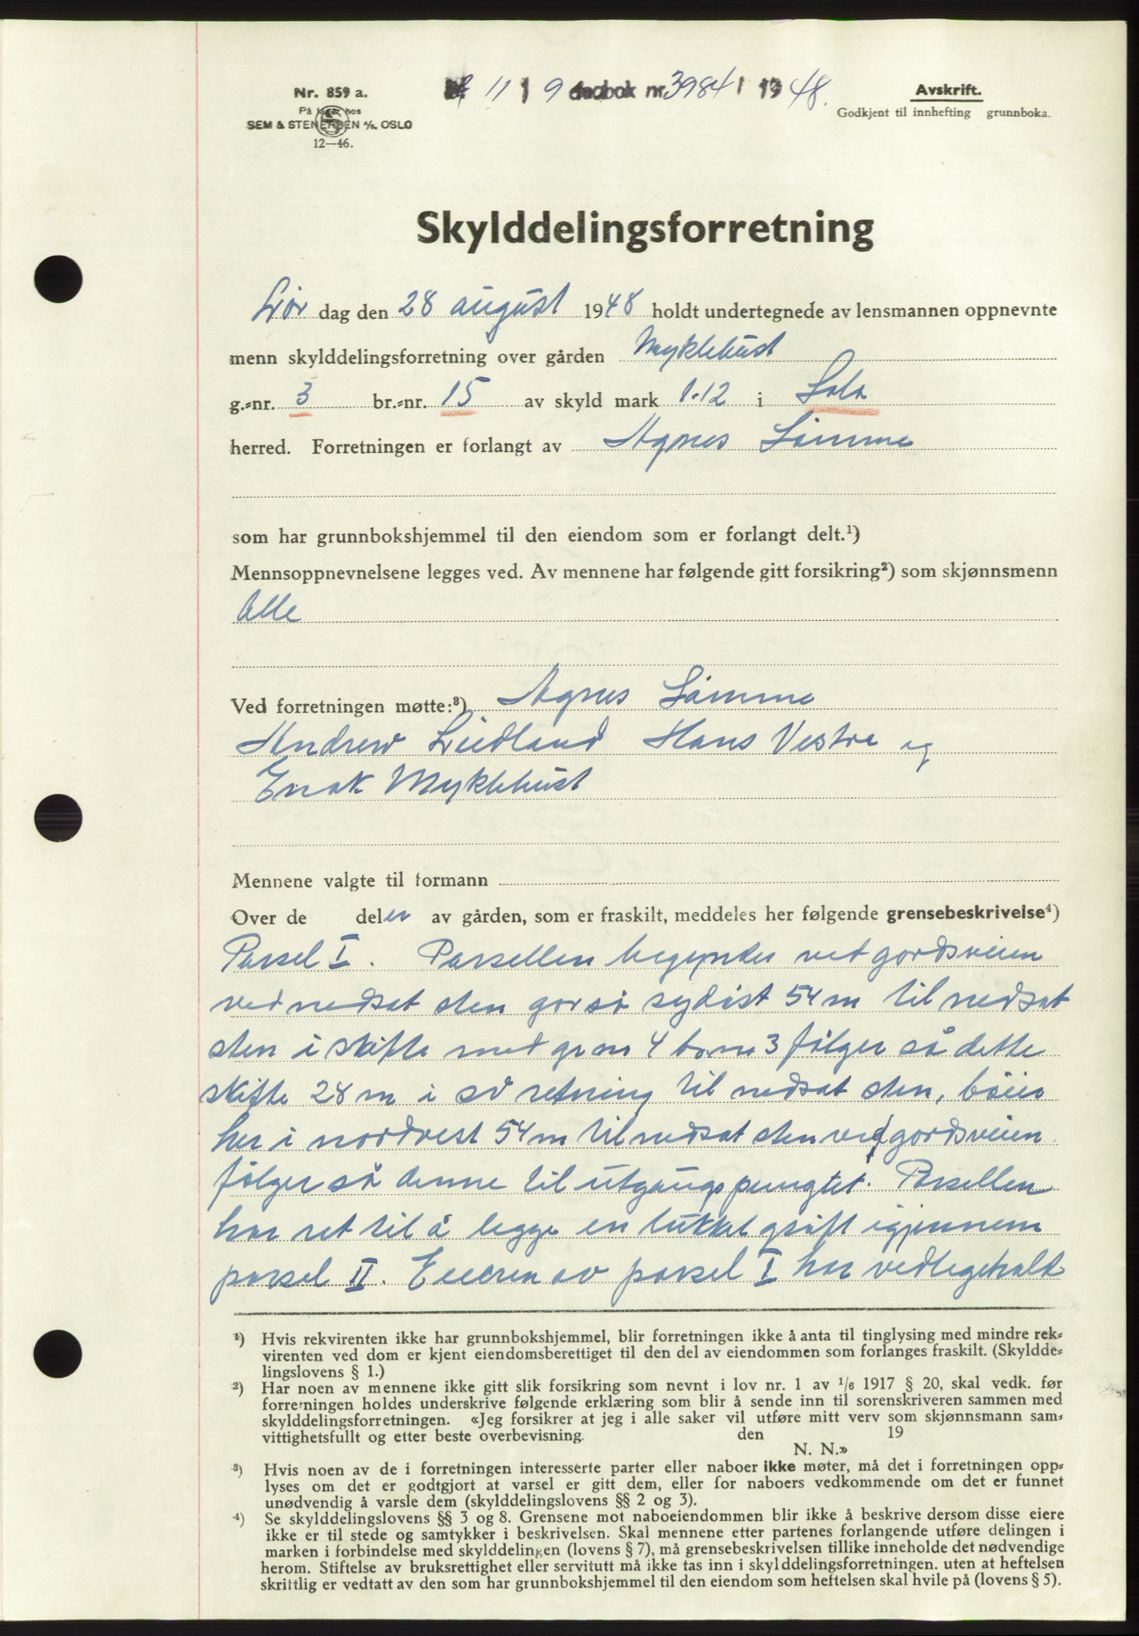 Nr. 859 a.
På lager hos
SEM & STENERSEN A/S, OSLO
12—46.
11 / 9 dagbok nr. 3984 / 19 48.
Avskrift.
Godkjent til innhefting grunnboka.
Skylddelingsforretning
Lør dag den 28 august 1948 holdt undertegnede av lensmannen oppnevnte
menn skylddelingsforretning over gården Myklebust
g.=nr. 3 br.=nr. 15 av skyld mark 1.12 i Sola
herred. Forretningen er forlangt av Agnes Sømme
som har grunnbokshjemmel til den eiendom som er forlangt delt.¹)
Mennsoppnevnelsene legges ved. Av mennene har følgende gitt forsikring²) som skjønnsmenn
Alle
Ved forretningen møtte:³) Agnes Sømme
Andrew Liedland Hans Vestre og
Enok Myklebust
Mennene valgte til formann
Over de deler av gården, som er fraskilt, meddeles her følgende grensebeskrivelse⁴)
Parsel I. Parsellen begynder ved gordsveien
ved nedsat sten gor så sydøst 54 m til nedsat
sten i skifte med gr nr 4 br nr 3 følger så dette
skifte 28 m i sv retning til nedsat sten, bøier
her i nordvest 54 m til nedsat sten ved gordsveien
følger så denne til utgangspungtet. Parsellen
har ret til å legge en lukket grøft igjennem
parsel II. Eieren av parsel I har vedlegehald
¹) Hvis rekvirenten ikke har grunnbokshjemmel, blir forretningen ikke å anta til tinglysing med mindre rek=
virenten ved dom er kjent eiendomsberettiget til den del av eiendommen som forlanges fraskilt. (Skyldde=
lingslovens § 1.)
²) Har noen av mennene ikke gitt slik forsikring som nevnt i lov nr. 1 av ¹/₆ 1917 § 20, skal vedk. før
forretningen holdes underskrive følgende erklæring som blir å sende inn til sorenskriveren sammen med
skylddelingsforretningen. «Jeg forsikrer at jeg i alle saker vil utføre mitt verv som skjønnsmann sam=
vittighetsfullt og etter beste overbevisning. den 19
N. N.»
³) Hvis noen av de i forretningen interesserte parter eller naboer ikke møter, må det i forretningen opp=
lyses om det er godtgjort at varsel er gitt dem, eller for naboers vedkommende om det er funnet
unødvendig å varsle dem (skylddelingslovens §§ 2 og 3).
⁴) Se skylddelingslovens §§ 3 og 8. Grensene mot naboeiendommen blir ikke å beskrive dersom disse eiere
ikke er til stede og samtykker i beskrivelsen. Skal mennene etter partenes forlangende utføre delingen i
marken i forbindelse med skylddelingen (lovens § 7), må grensebeskrivelsen tillike inneholde det nødvendige
herom. Stiftelse av bruksrettighet eller servitutt må ikke tas inn i skylddelingsforretningen. uten at heftelsen
skriftlig er vedtatt av den som har grunnbokshjemmel til den eiendom som heftelsen skal hvile på (lovens § 5).